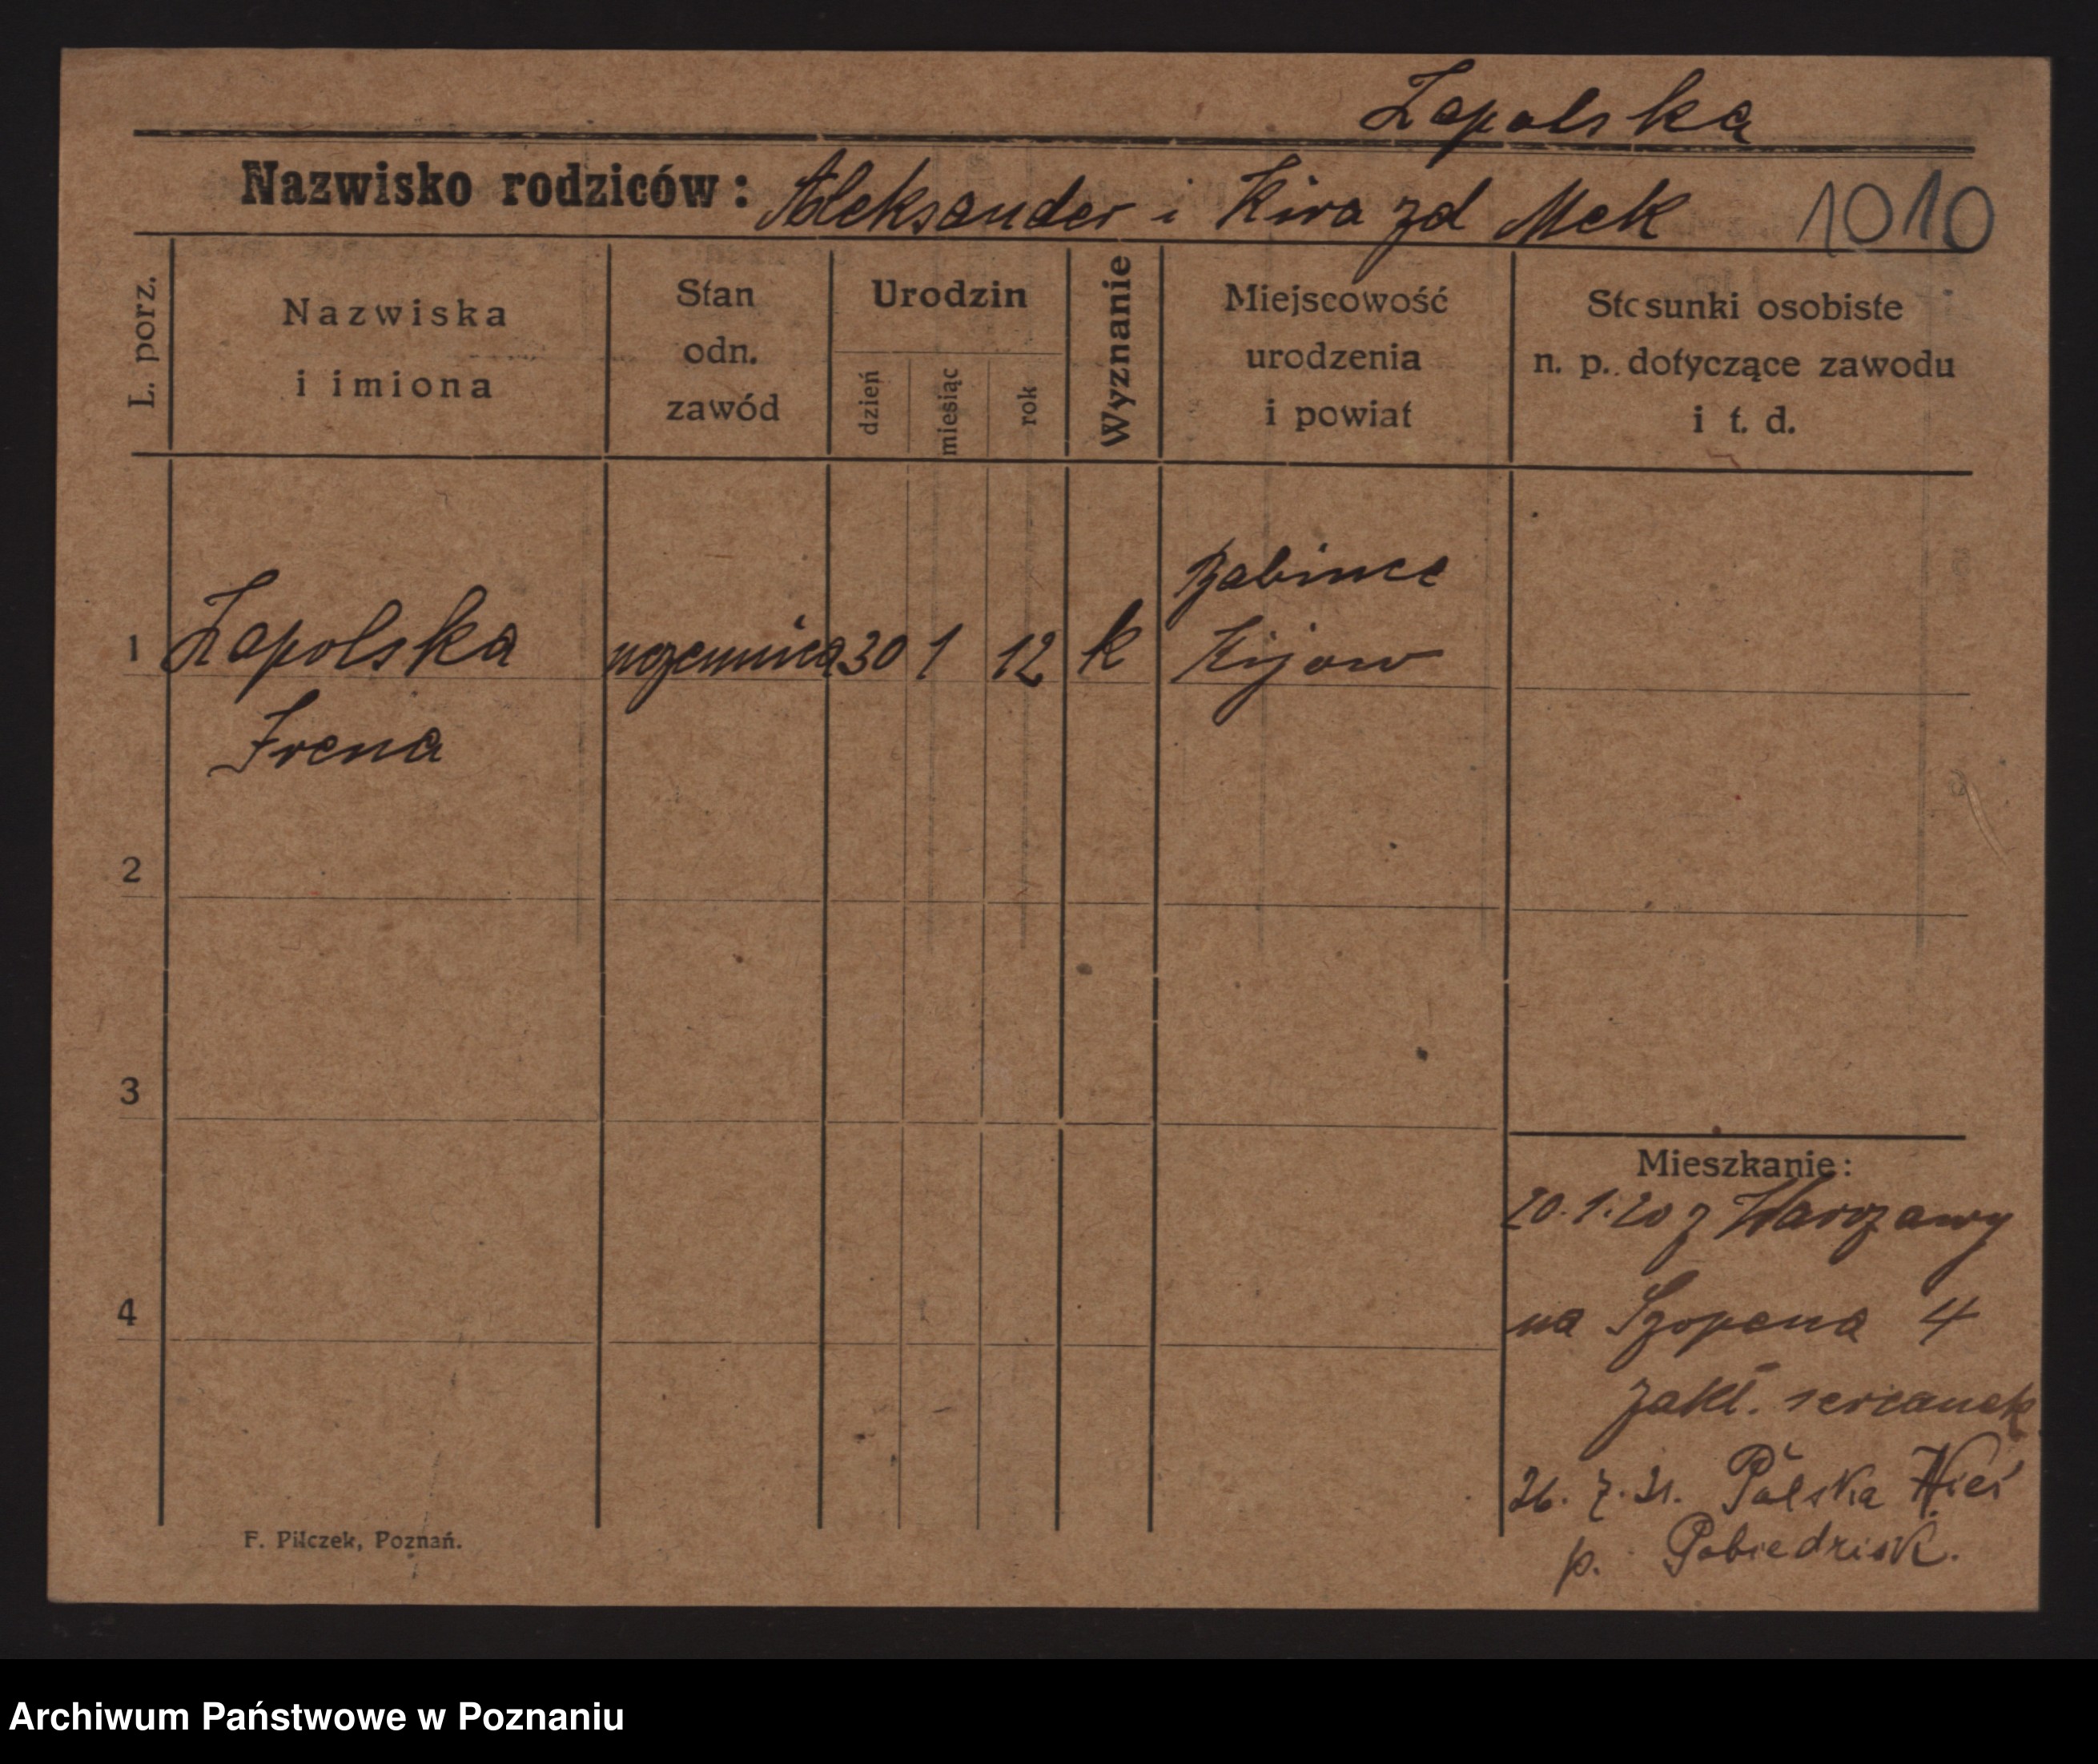 Zapolska
Nazwisko rodziców: Aleksander i Kira zd Mek
1010
L. porz.
Nazwiska
i imiona
Stan
odn.
zawód
Urodzin
dzień
miesiąc
rok
Wyznanie
Miejscowość
urodzenia
i powiat
Stosunki osobiste
n. p. dotyczące zawodu
i t. d.
Babince
1 Zapolska uczennica 30 1 12 k Kijow
Irena
2
3
4
Mieszkanie:
20.1.20 z Warszawy
na Szopena 4
zakł. sercanek
26. 7. 21. Polska Wieś
p. Pobiedzisk.
F. Pilczek, Poznań.
Archiwum Państwowe w Poznaniu